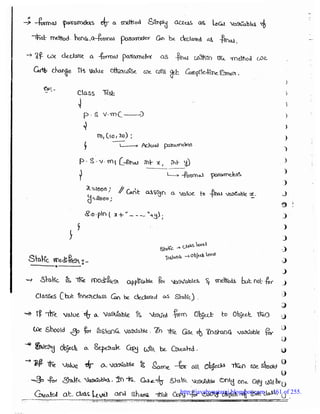 → formal parameters of a method Simply access as Local Variables of
that method hence, a formal parameter Can be declared as final.
→ If we declare a formal parameter as final within the method we
Can't change its value otherwise we will get CompileTime Error.
Ex:-
class Test
{
p. s v. m( ——)
{
m1(10, 20);
} → Actual parameters
p. s. v. m1 (final int x, int y)
{ → formal parameters
x=1000; // Can't assign a value to final variable x.
y=2000;
S.o.pln( x+"- - - -"+y);
}
}
static → class level
instance → object level
Static modifier :-
→ Static is the modifier applicable for variables & methods but not for
classes (but Innerclasses Can be declared as Static).
→ If the value of a variable is varied from Object to Object then
we should go for instance variable. In the Case of instance variable for
every object a Seperate Copy will be Created.
→ If the value of a variable is Same for all objects then we should
go for Static variables. In the Case of Static variable only one Copy will be
Created at class Level and share that Copy for every object of that class
161 of 255.